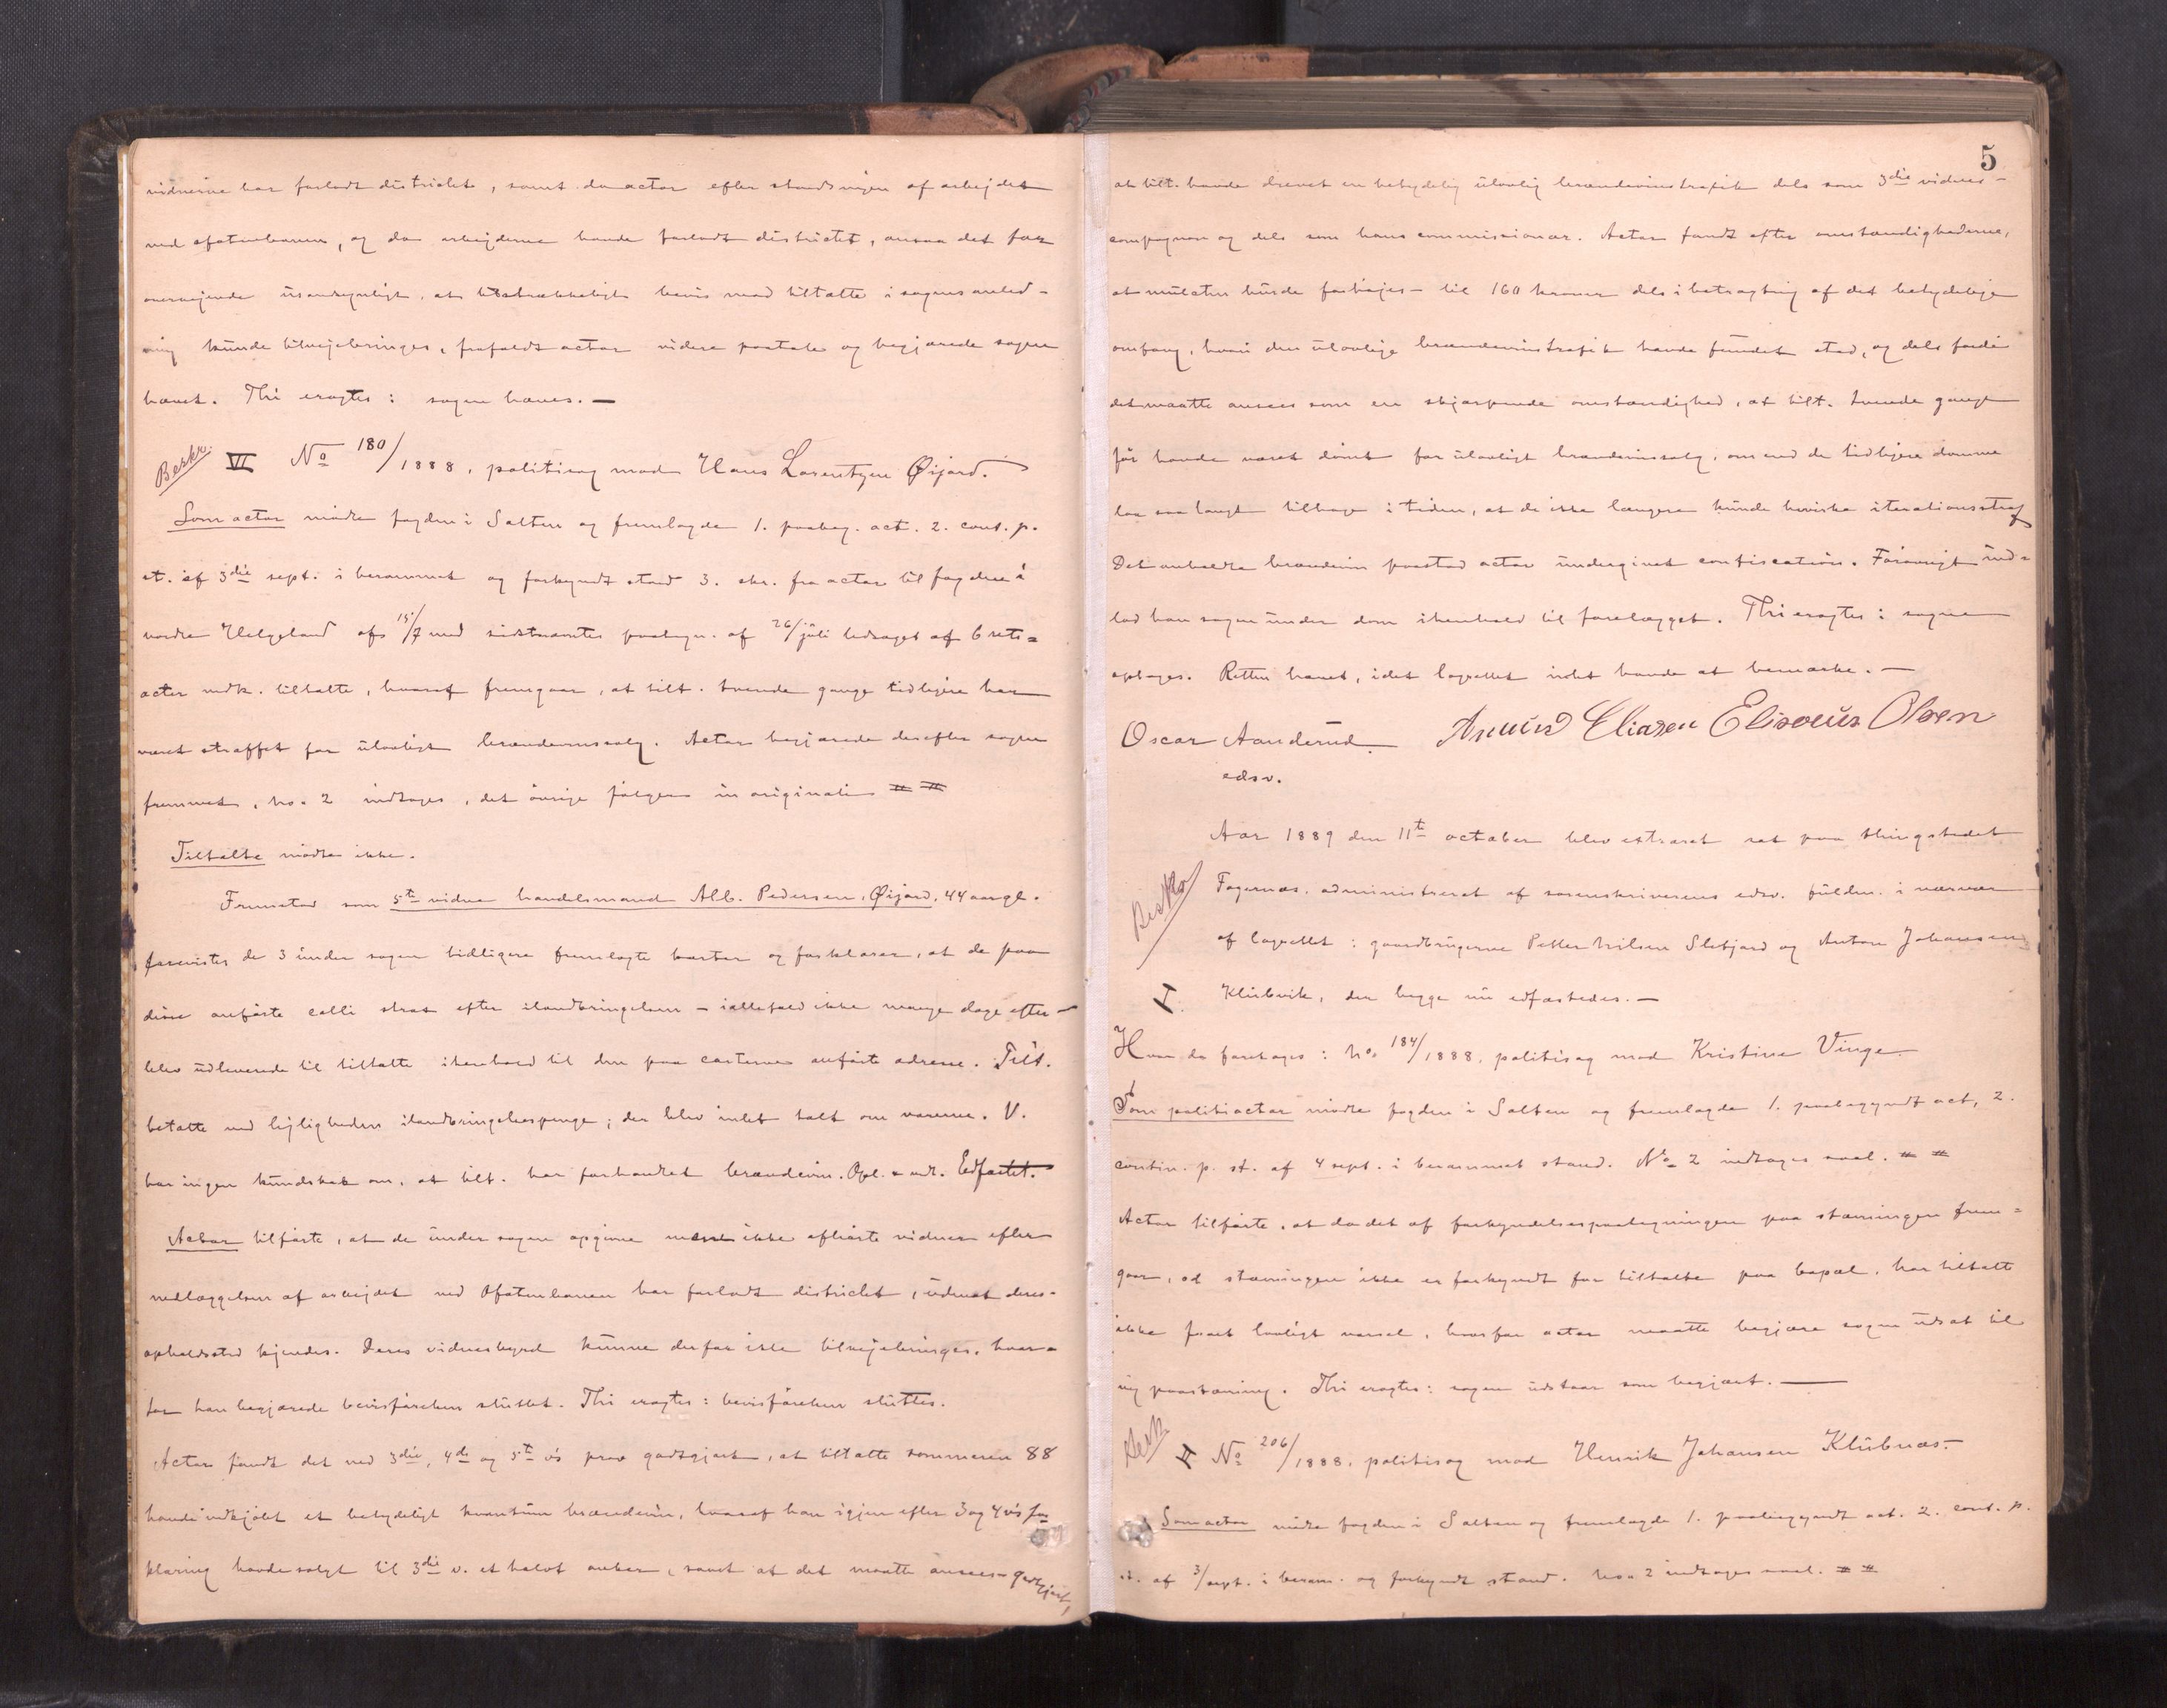 vidnerne har forladt districtet, samt da actor efter standsningen af arbejdet
ved ofotenbanen, og da arbejderne havde forladt districtet, ansaa det for
overvejende usandsynligt, at tilstrækkeligt bevis mod tiltalte i sagens anled-
ning kunde tilvejebringes, frafaldt actor videre paatale og begjærede sagen
hævet. Thi eragtes: sagen hæves. —
Beskr. VI No 180/1888, politisag mod Hans Lorentzen Øijord.
Som actor mødte fogden i Salten og fremlagde 1. paabeg. act. 2. cont. p.
st. af 3die sept. i berammet og forkyndt stand 3. skr. fra actor til fogden i
nordre Helgeland af 15/7 med sidstnævntes paategn. af 26/juli ledsaget af 6 rets=
acter vedk. tiltalte, hvoraf fremgaar, at tilt. tvende gange tidligere har
været straffet for ulovligt brændevinssalg. Actor begjærede derefter sagen
fremmet, no. 2 indtages, det øvrige følger in originali
Tiltalte mødte ikke.
Fremstod som 5te vidne handelsmand Alb. Pedersen, Øijord, 44 aar gl.
forevistes de 3 under sagen tidligere fremlagte karter og forklarer, at de paa
disse anførte colli strax efter ilandbringelsen – iallefald ikke mange dage efter –
blev udleverede til tiltalte ihenhold til den paa carterne anførte adresse. Tilt.
betalte ved lejligheden ilandbringelsespenge; der blev intet talt om varerne. V.
har ingen kundskab om, at tilt. har forhandlet brændevin. Opl. vedt. Edfæstet.
Actor tilførte, at de under sagen opgivne men ikke afhørte vidner efter
nedlæggelsen af arbejdet ved Ofotenbanen har forladt districtet, uden at deres
opholdssted kjendes. Deres vidnesbyrd kunne derfor ikke tilvejebringes, hvor-
for han begjærede bevisførelsen sluttet. Thi eragtes: bevisførelsen sluttes.
Actor fandt det ved 3die, 4de og 5te v's prov godtgjort, at tiltalte sommeren 88
havde indkjøbt et betydeligt kvantum brændevin, hvoraf han igjen efter 3 og 4 v's for
klaring havde solgt til 3die v. et halvt anker, samt at det maatte ansees godtgjort,
5
at tilt. havde drevet en betydelig ulovlig brændevinstrafik dels som 3die vidnes –
compagnon og dels som hans commissionær. Actor fandt efter omstændighederne,
at mulcten burde forhøjes – til 160 kroner dels i betragtning af det betydelige
omfang, hvori den ulovlige brændevinstrafik havde fundet sted, og dels fordi
det maatte ansees som en skjærpende omstændighed, at tilt. tvende gange
før havde været dømt for ulovligt brændevinssalg, om end de tidligere domme
laa saa langt tilbage i tiden, at de ikke længere kunde bevirke iterationsstraf
Det anholdte brændevin paastod actor undergivet confiscation. Forøvrigt ind=
lod han sagen under dom ihenhold til forelægget. Thi eragtes: sagen
optages. Retten hævet, idet lagrettet intet havde at bemærke. —
Oscar Aanderud Amund Eliasen Elisæus Olsen
edsv.
Aar 1889 den 11te october blev extraret sat paa thingstedet
Beskr. Fagernæs, administreret af sorenskriverens edsv. fuldm. i nærvær
af lagrettet: gaardbrugerne Petter Nilsen Sletjord og Anton Johansen
I. Klubvik, der begge nu edfæstedes. —
Hvor da foretages: No. 184/1888, politisag mod Kristine Vinge.
Som politiactor mødte fogden i Salten og fremlagde 1. paabegyndt act, 2.
contin. p. st. af 4 sept. i berammet stand. No 2 indtages saal.
Actor tilførte, at da det af forkyndelsespaategningen paa stævningen frem=
gaar, at stævningen ikke er forkyndt for tiltalte paa bopæl, har tiltalte
ikke faaet lovligt varsel, hvorfor actor maatte begjære sagen udsat til
ny paastævning. Thi eragtes: sagen udstaar som begjært. —
Beskr. II No 206/1888, politisag mod Henrik Johansen Klubnæs.
Som actor mødte fogden i Salten og fremlagde 1. paabegyndt act. 2. cont. p.
st. af 3/sept. i beram. og forkyndt stand. No. 2 indtages saal.